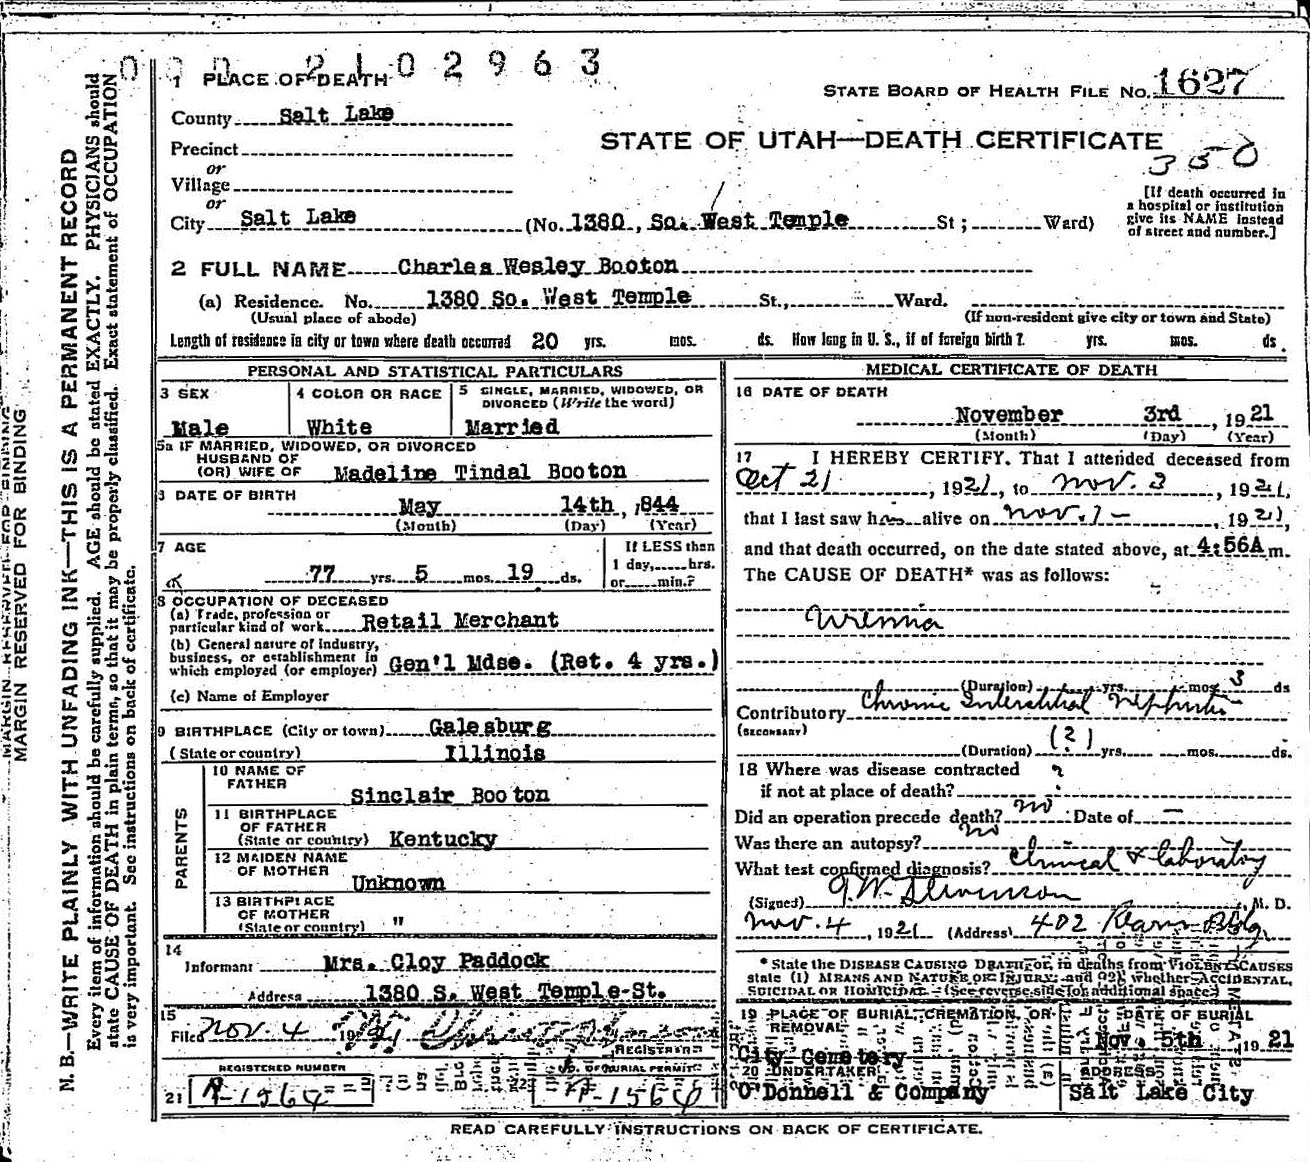 0002102963
1 PLACE OF DEATH
STATE BOARD OF HEALTH FILE NO. 1627
County Salt Lake
STATE OF UTAH—DEATH CERTIFICATE
350
Precinct
or
Village
or
City Salt Lake (No. 1380, So. West Temple St; Ward)
[If death occurred in
a hospital or institution
give its NAME instead
of street and number.]
2 FULL NAME Charles Wesley Booton
(a) Residence. No. 1380 So. West Temple St., Ward.
(Usual place of abode) (If non-resident give city or town and State)
Length of residence in city or town where death occurred 20 yrs. mos. ds. How long in U. S., if of foreign birth? yrs. mos. ds.
PERSONAL AND STATISTICAL PARTICULARS
3 SEX
Male
4 COLOR OR RACE
White
5 SINGLE, MARRIED, WIDOWED, OR
DIVORCED (Write the word)
Married
5a IF MARRIED, WIDOWED, OR DIVORCED
HUSBAND OF
(OR) WIFE OF Madeline Tindal Booton
DATE OF BIRTH
May 14th, 1844
(Month) (Day) (Year)
7 AGE
77 yrs. 5 mos. 19 ds.
If LESS than
1 day, hrs.
or min.?
8 OCCUPATION OF DECEASED
(a) Trade, profession or
particular kind of work Retail Merchant
(b) General nature of industry,
business, or establishment in
which employed (or employer) Gen'l Mdse. (Ret. 4 yrs.)
(c) Name of Employer
9 BIRTHPLACE (City or town) Galesburg
(State or country) Illinois
PARENTS
10 NAME OF
FATHER
Sinclair Booton
11 BIRTHPLACE
OF FATHER
(State or country) Kentucky
12 MAIDEN NAME
OF MOTHER
Unknown
13 BIRTHPLACE
OF MOTHER
(State or country) "
14
Informant Mrs. Cloy Paddock
Address 1380 S. West Temple-St.
15
Filed Nov. 4 1921
REGISTRAR
REGISTERED NUMBER
NO. OF BURIAL PERMIT
21 R-1564 R-1564
MEDICAL CERTIFICATE OF DEATH
16 DATE OF DEATH
November 3rd, 1921
(Month) (Day) (Year)
17 I HEREBY CERTIFY. That I attended deceased from
Oct 21, 1921, to Nov. 3, 1921,
that I last saw him alive on Nov. 1-, 1921,
and that death occurred, on the date stated above, at 4:56A m.
The CAUSE OF DEATH* was as follows:
Uremia
(Duration) yrs. mos. 3 ds
Contributory Chronic Interstitial Nephritis
(SECONDARY)
(Duration) (?) yrs. mos. ds.
18 Where was disease contracted
if not at place of death? ?
Did an operation precede death? no Date of —
Was there an autopsy? no
What test confirmed diagnosis? Clinical & laboratory
(Signed) G.W. Stevenson, M. D.
Nov. 4, 1921 (Address) 402 Kearns Bldg.
* State the DISEASE CAUSING DEATH, or, in deaths from VIOLENT CAUSES
state (1) MEANS AND NATURE OF INJURY; and (2), whether ACCIDENTAL,
SUICIDAL OR HOMICIDAL (See reverse side for additional space.)
19 PLACE OF BURIAL, CREMATION, OR
REMOVAL
City Cemetery
DATE OF BURIAL
Nov. 5th 1921
20 UNDERTAKER
O'Donnell & Company
ADDRESS
Salt Lake City
READ CAREFULLY INSTRUCTIONS ON BACK OF CERTIFICATE.
MARGIN RESERVED FOR BINDING
MARGIN RESERVED FOR BINDING
N. B.—WRITE PLAINLY WITH UNFADING INK—THIS IS A PERMANENT RECORD
Every item of information should be carefully supplied. AGE should be stated EXACTLY. PHYSICIANS should
state CAUSE OF DEATH in plain terms, so that it may be properly classified. Exact statement of OCCUPATION
is very important. See instructions on back of certificate.